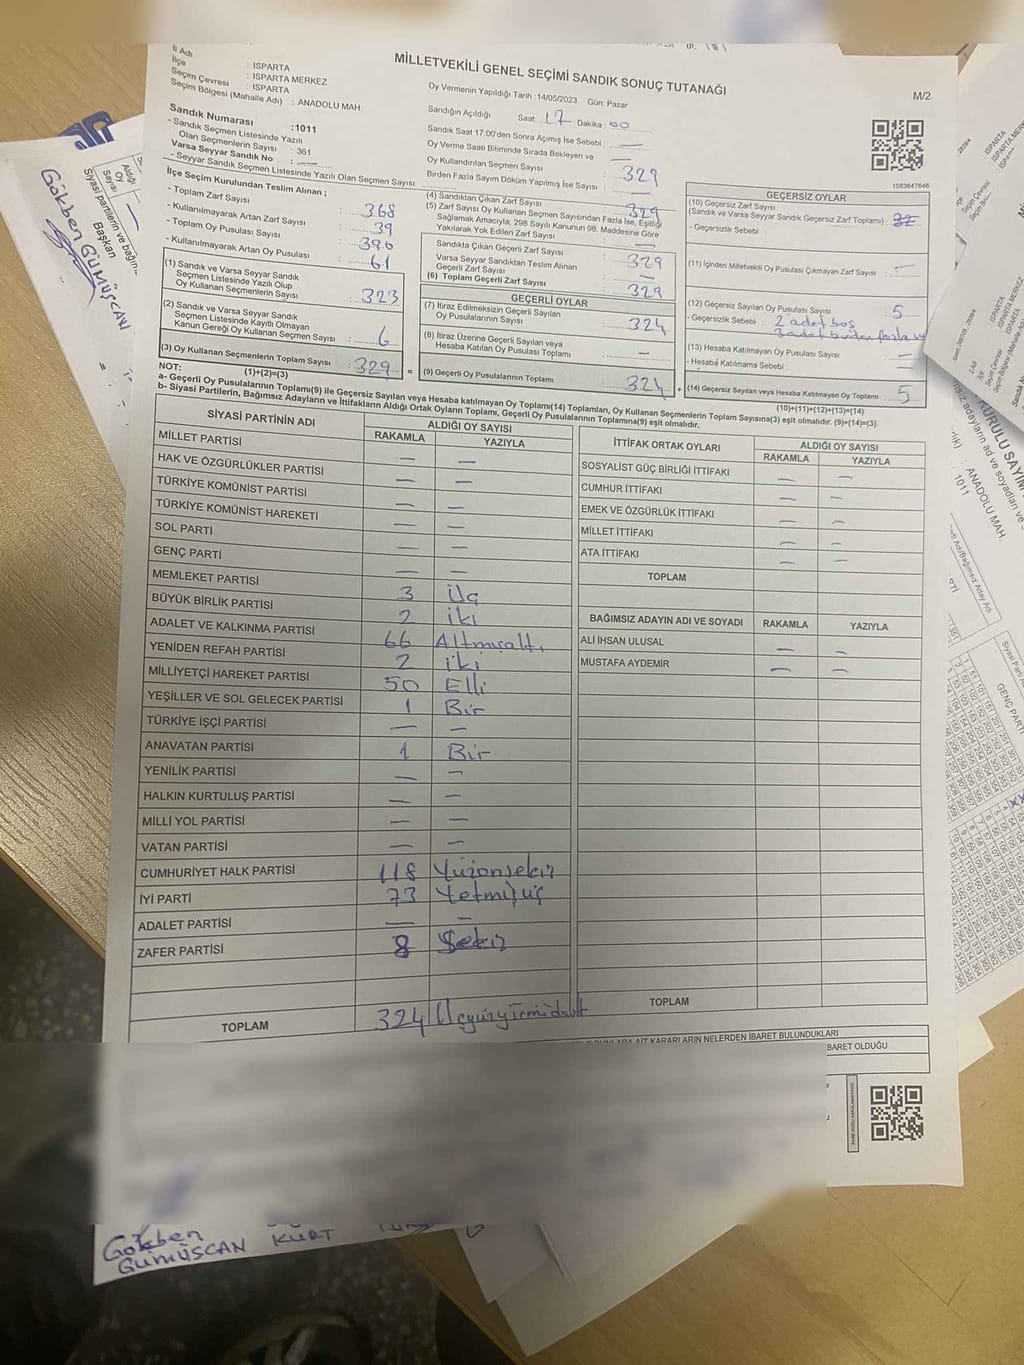 MİLLETVEKİLİ GENEL SEÇİMİ SANDIK SONUÇ TUTANAĞI
M/2
İl Adı : ISPARTA
İlçe : ISPARTA MERKEZ
Seçim Çevresi : ISPARTA
Seçim Bölgesi (Mahalle Adı) : ANADOLU MAH.
Sandık Numarası :1011
- Sandık Seçmen Listesinde Yazılı Olan Seçmenlerin Sayısı : 361
Varsa Seyyar Sandık No : —
- Seyyar Sandık Seçmen Listesinde Yazılı Olan Seçmen Sayısı:
Oy Vermenin Yapıldığı Tarih :14/05/2023 Gün: Pazar
Sandığın Açıldığı Saat: 17 Dakika: 00
Sandık Saat 17:00'den Sonra Açımış İse Sebebi : —
Oy Verme Saati Bitiminde Sırada Bekleyen ve
Oy Kullandırılan Seçmen Sayısı : —
Birden Fazla Sayım Döküm Yapılmış İse Sayısı : 329
1083647646
İlçe Seçim Kurulundan Teslim Alınan ;
- Toplam Zarf Sayısı : 368
- Kullanılmayarak Artan Zarf Sayısı : 39
- Toplam Oy Pusulası Sayısı : 390
- Kullanılmayarak Artan Oy Pusulası : 61
(1) Sandık ve Varsa Seyyar Sandık
Seçmen Listesinde Yazılı Olup
Oy Kullanan Seçmenlerin Sayısı : 323
(2) Sandık ve Varsa Seyyar Sandık
Seçmen Listesinde Kayıtlı Olmayan
Kanun Gereği Oy Kullanan Seçmen Sayısı : 6
(3) Oy Kullanan Seçmenlerin Toplam Sayısı : 329
(1)+(2)=(3)
(4) Sandıktan Çıkan Zarf Sayısı : 329
(5) Zarf Sayısı Oy Kullanan Seçmen Sayısından Fazla İse, Eşitliği
Sağlamak Amacıyla, 298 Sayılı Kanunun 98. Maddesine Göre
Yakılarak Yok Edilen Zarf Sayısı : —
Sandıkta Çıkan Geçerli Zarf Sayısı : 329
Varsa Seyyar Sandıktan Teslim Alınan
Geçerli Zarf Sayısı : —
(6) Toplam Geçerli Zarf Sayısı : 329
GEÇERLİ OYLAR
(7) İtiraz Edilmeksizin Geçerli Sayılan
Oy Pusulalarının Sayısı : 324
(8) İtiraz Üzerine Geçerli Sayılan veya
Hesaba Katılan Oy Pusulası Toplamı : —
= (9) Geçerli Oy Pusulalarının Toplamı : 324 +
GEÇERSİZ OYLAR
(10) Geçersiz Zarf Sayısı
(Sandık ve Varsa Seyyar Sandık Geçersiz Zarf Toplamı) :
- Geçersizlik Sebebi :
(11) İçinden Milletvekili Oy Pusulası Çıkmayan Zarf Sayısı : —
(12) Geçersiz Sayılan Oy Pusulası Sayısı : 5
- Geçersizlik Sebebi : 2 adet boş
3 adet birden fazla
(13) Hesaba Katılmayan Oy Pusulası Sayısı : —
- Hesaba Katılmama Sebebi : —
(14) Geçersiz Sayılan veya Hesaba Katılmayan Oy Toplamı : 5
(10)+(11)+(12)+(13)=(14)
NOT:
a- Geçerli Oy Pusulalarının Toplamı(9) ile Geçersiz Sayılan veya Hesaba katılmayan Oy Toplamı(14) Toplamları, Oy Kullanan Seçmenlerin Toplam Sayısına(3) eşit olmalıdır. (9)+(14)=(3)
b- Siyasi Partilerin, Bağımsız Adayların ve İttifakların Aldığı Ortak Oyların Toplamı, Geçerli Oy Pusulalarının Toplamına(9) eşit olmalıdır.
SİYASİ PARTİNİN ADI ALDIĞI OY SAYISI
RAKAMLA YAZIYLA
MİLLET PARTİSİ — —
HAK VE ÖZGÜRLÜKLER PARTİSİ — —
TÜRKİYE KOMÜNİST PARTİSİ — —
TÜRKİYE KOMÜNİST HAREKETİ — —
SOL PARTİ — —
GENÇ PARTİ — —
MEMLEKET PARTİSİ 3 üç
BÜYÜK BİRLİK PARTİSİ 2 iki
ADALET VE KALKINMA PARTİSİ 66 Altmışaltı
YENİDEN REFAH PARTİSİ 2 iki
MİLLİYETÇİ HAREKET PARTİSİ 50 Elli
YEŞİLLER VE SOL GELECEK PARTİSİ 1 Bir
TÜRKİYE İŞÇİ PARTİSİ — —
ANAVATAN PARTİSİ 1 Bir
YENİLİK PARTİSİ — —
HALKIN KURTULUŞ PARTİSİ — —
MİLLİ YOL PARTİSİ — —
VATAN PARTİSİ — —
CUMHURİYET HALK PARTİSİ 118 Yüzonsekiz
İYİ PARTİ 73 Yetmişüç
ADALET PARTİSİ — —
ZAFER PARTİSİ 8 Sekiz
TOPLAM 324 Üçyüzyirmidört
İTTİFAK ORTAK OYLARI ALDIĞI OY SAYISI
RAKAMLA YAZIYLA
SOSYALİST GÜÇ BİRLİĞİ İTTİFAKI — —
CUMHUR İTTİFAKI — —
EMEK VE ÖZGÜRLÜK İTTİFAKI — —
MİLLET İTTİFAKI — —
ATA İTTİFAKI — —
TOPLAM
BAĞIMSIZ ADAYIN ADI VE SOYADI RAKAMLA YAZIYLA
ALİ İHSAN ULUSAL — —
MUSTAFA AYDEMİR — —
TOPLAM
KARARLARIN NELERDEN İBARET BULUNDUKLARI
BARET OLDUĞU
Gökben
GÜMÜŞCAN KURT
Gökben GÜMÜŞCAN
Başkan
Siyasi partilerin ve bağım
Aldığı
Oy
Sayısı
KURULU SAYIM
ANADOLU MAH.
1011
GENÇ PARTİ
ISPARTA
ISPARTA MERKEZ
ISPARTA